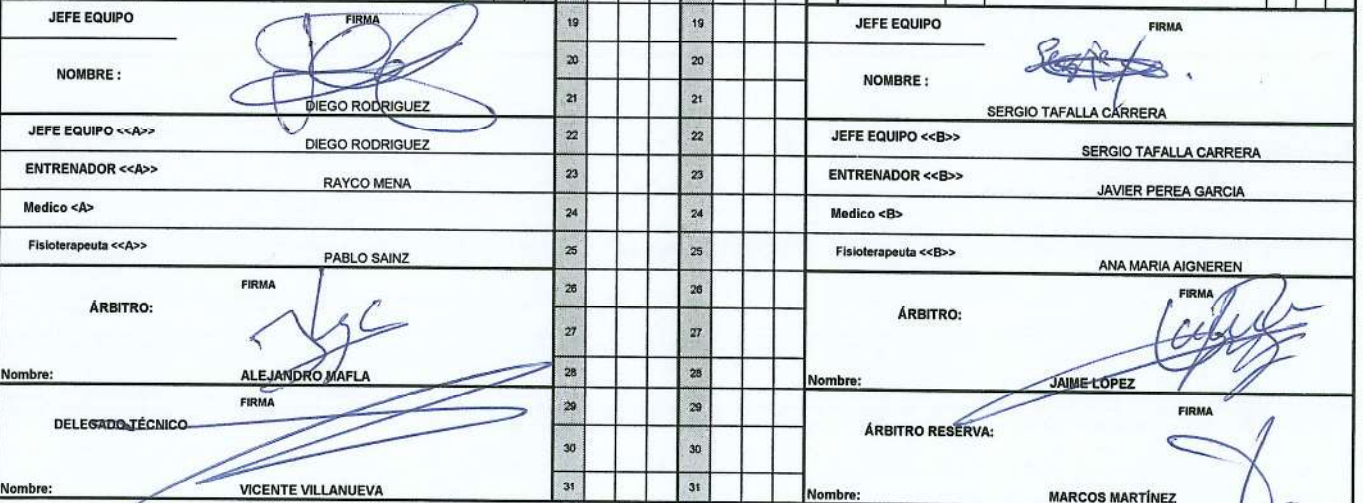 JEFE EQUIPO
FIRMA
NOMBRE :
DIEGO RODRIGUEZ
JEFE EQUIPO <<A>>
DIEGO RODRIGUEZ
ENTRENADOR <<A>>
RAYCO MENA
Medico <A>
Fisioterapeuta <<A>>
PABLO SAINZ
ÁRBITRO:
FIRMA
Nombre:
ALEJANDRO MAFLA
DELEGADO TÉCNICO
FIRMA
Nombre:
VICENTE VILLANUEVA
19 19
20 20
21 21
22 22
23 23
24 24
25 25
26 26
27 27
28 28
29 29
30 30
31 31
JEFE EQUIPO
FIRMA
NOMBRE :
SERGIO TAFALLA CARRERA
JEFE EQUIPO <<B>>
SERGIO TAFALLA CARRERA
ENTRENADOR <<B>>
JAVIER PEREA GARCIA
Medico <B>
Fisioterapeuta <<B>>
ANA MARIA AIGNEREN
ÁRBITRO:
FIRMA
Nombre:
JAIME LÓPEZ
ÁRBITRO RESERVA:
FIRMA
Nombre:
MARCOS MARTÍNEZ